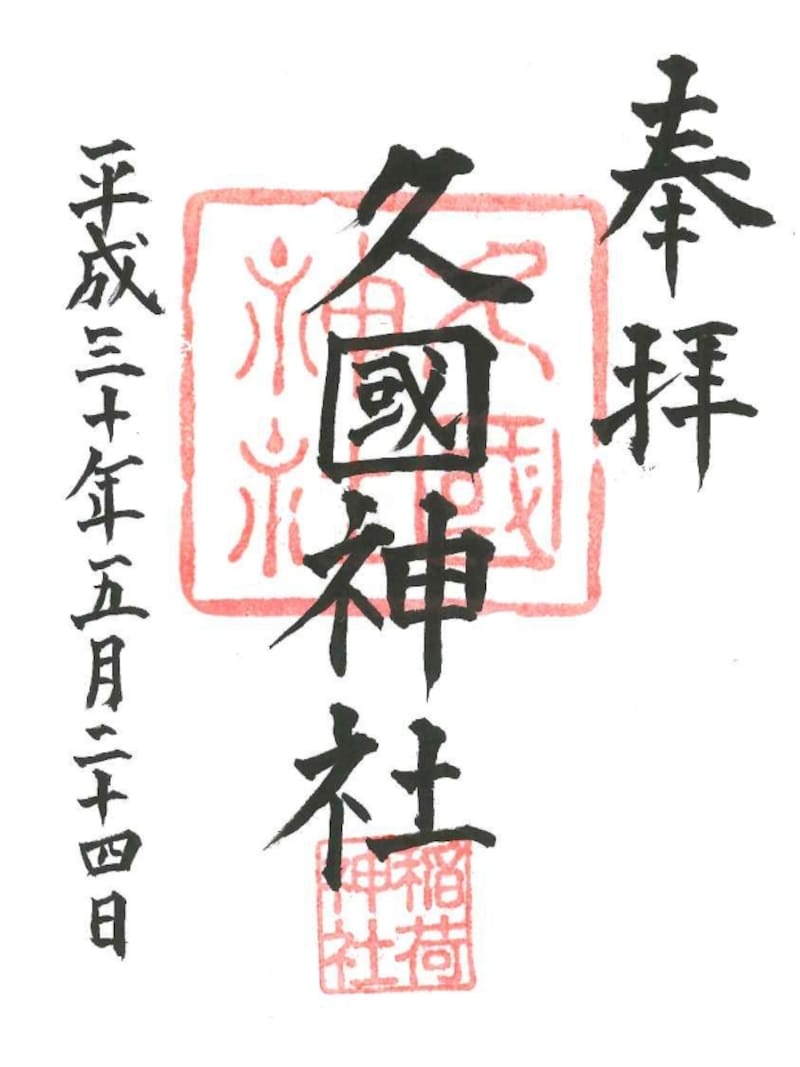 奉拝
久國神社
久國
神社
稲荷
神社
平成三十年五月二十四日